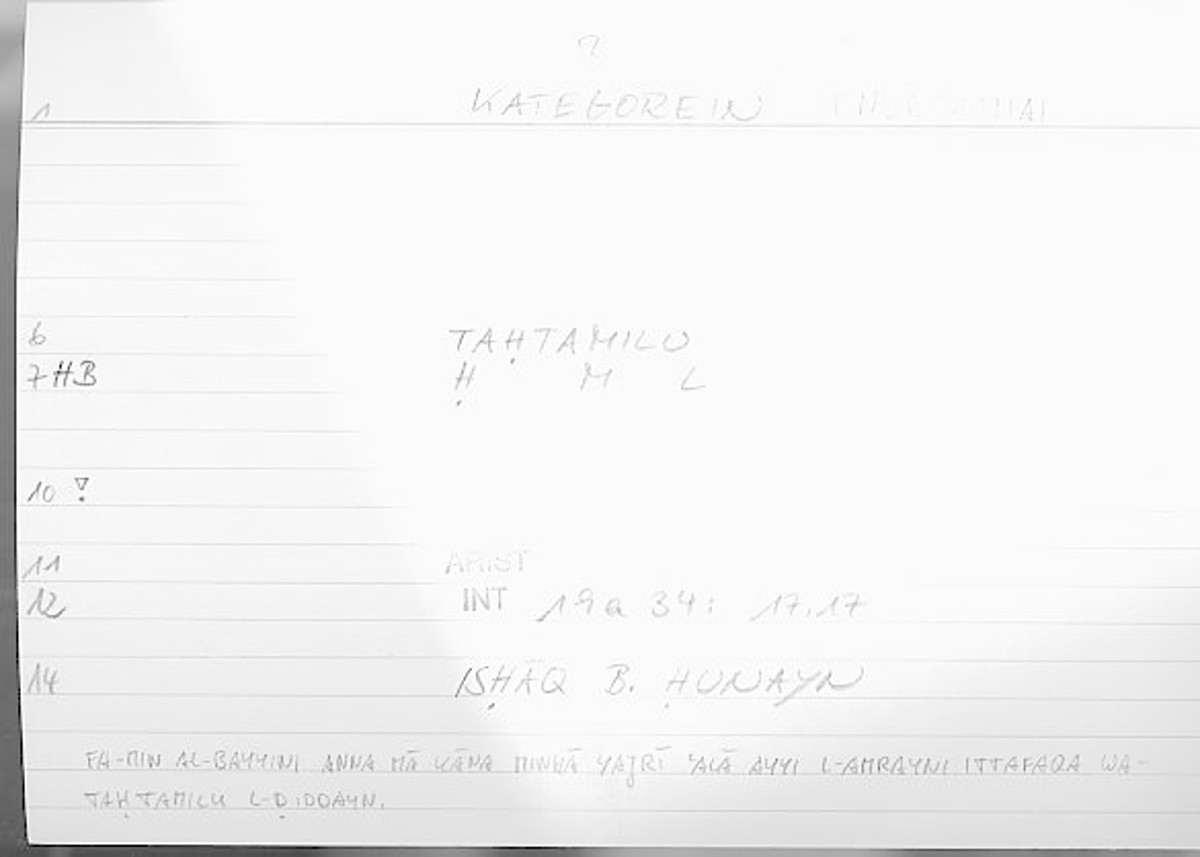 ?
1 KATEGOREIN
6 TAḤTAMILU
7 HB Ḥ M L
10
11 ARIST
12 INT 19a 34: 17.17
14 ISḤĀQ B. ḤUNAYN
FA-MIN AL-BAYYINI ANNA MĀ KĀNA MINHĀ YAJRĪ ʿALĀ AYYI L-AMRAYNI ITTAFAQA WA-
TAḤTAMILU L-ḌIDDAYN.